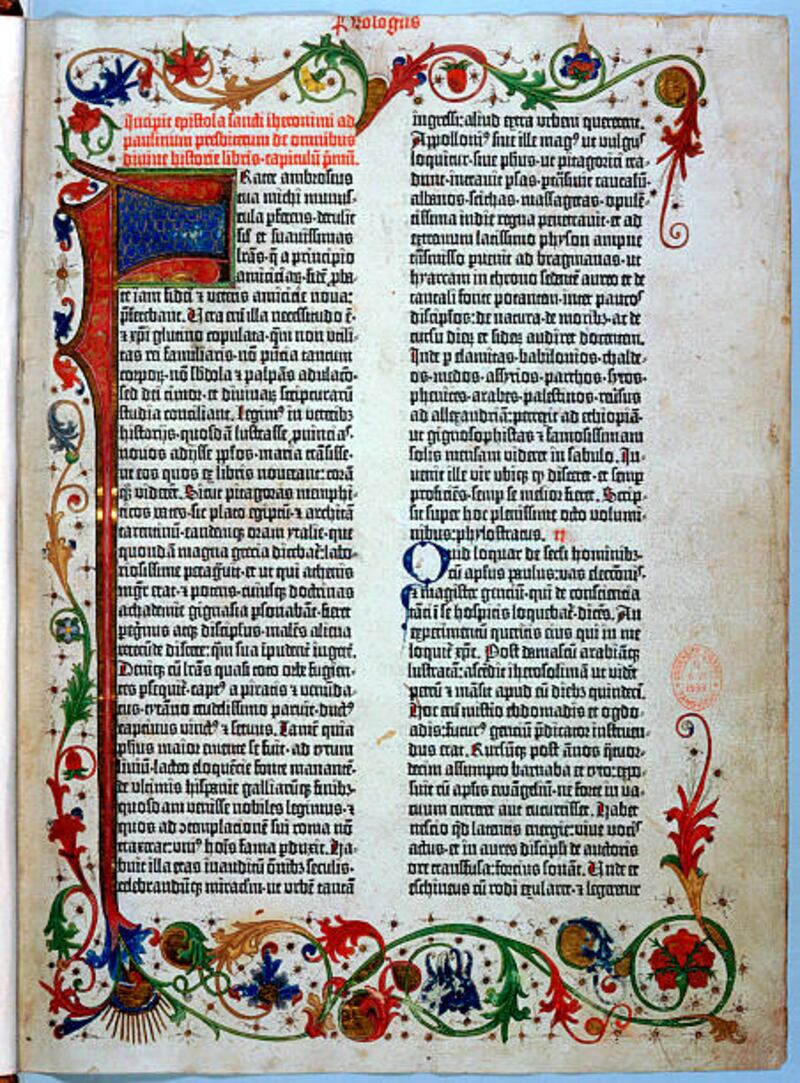 Prologus
Incipit epistola sancti iheronimi ad
paulinum presbiterum de omnibus
divine historie libris·capitulū p̄mū.
Frater ambrosius
tua michi munus-
cula ꝑferens·detulit
sił et suavissimas
lr̄as·q̄ a principio
amiciciaꝝ·fidē ꝓba-
te iam fidei ⁊ veteris amicicie nova:
p̄ferebant. Vera eni illa necessitudo ē·
⁊ xp̄i glutino copulata·qm̄ non vtili-
tas rei familiaris·nō pn̄tia tantum
corpoꝝ·nō sbdola ⁊ palpās adulacō·
sed dei timor·et divinaꝝ scripturarū
studia conciliant. Legim⁹ in veterib⁊
historijs·quosdā lustrasse ꝓuincias·
novos adijsse ppl̄os·maria trāsisse·
ut eos quos ex libris noverant: corā
q̄ꝫ viderēt. Sicut pitagoras memphi-
ticos vates·sic plato egiptū·⁊ architā
tarentinū·eandemqꝫ oram ytalie·que
quondā magna grecia dicebat̄: labo-
riosissime peragravit·et ut qui athenis
mgr̄ erat·⁊ potens·cuiusqꝫ doctrinas
achademie gignasia ꝑsonabāt·fieret
peg̓nus atqꝫ discipulus·malēs aliena
verecūde discere: qm̄ sua īpudent̓ ingerē.
Deniqꝫ cū lr̄as quasi toto orbe fugien-
tes ꝑseq̄ret̄·capt⁹ a piratis ⁊ venūda-
tus·tyrāno crudelissimo paruit·duct⁹
captivus vinct⁹ ⁊ servus. Tamē quia
ph̄us maior emente se fuit·ad tytum
liviū·lacteo eloquēcie fonte manantē·
de vltimis hispanie galliarūqꝫ finib⁊
quosdam venisse nobiles legimus·⁊
quos ad ꝯtemplacionē sui roma nō
traxerat: vni⁹ hoīs fama ꝑduxit. Ha-
buit illa etas inauditū om̄ib⁊ seculis·
celebrandūqꝫ miraculū·ut urbē tantā
ingressi: aliud extra urbem quererent.
Appolloni⁹ sive ille mag⁹ ut vulgus
loquitur·sive ph̄us·ut pitagorici tra-
dunt·intravit ꝑsas·ꝑtrāsivit caucasū·
albanos·scithas·massagetas·opulē-
tissima indie regna penetravit·et ad
extremum latissimo physon ampne
trāsmisso puenit ad bragmanas·ut
hyarcam in throno sedentē aureo et de
tantali fonte potantem·inter paucos
discipulos: de natura·de moribꝫ·ac de
cursu dieꝝ et sideꝝ audiret docentem.
Inde ꝑ elamitas·babilonios·chalde-
os·medos·assyrios·parthos·syros·
phenices·arabes·palestinos·reūsus
ad allexandriā: perrexit ad ethiopiā·
ut gignosophistas ⁊ famosissimam
solis mensam videret in sabulo. In-
venit ille vir ubiqꝫ qd̄ disceret·et semꝑ
proficiēs·semꝑ se melior fieret. Scrip-
sit super hoc plenissime octo volumi-
nibus: phylostratus. II
Quid loquar de secl̓i hominibꝫ·
cū apl̄us paulus: vas electōnis·
⁊ magister gentiū·qui de consciencia
tāti ī se hospitis loquebat̄·dicēs. An
experimentum queritis eius qui in me
loquit̄ xp̄c. Post damascū arabiāqꝫ
lustratā: ascēdit iherosolimā ut vidēt
petrū ⁊ māsit apud eū diebꝫ quindeci.
Hoc enī misterio ebdomadis et ogdo-
adis: futur⁹ gentiū p̄dicator instruen-
dus erat. Rursūqꝫ post ānos q̄tuor-
decim assumpto barnaba et tyto: expo-
suit cū apl̄is ewāgeliū·ne forte in va-
cuum curreret aut cucurrisset. Habet
nescio qd̄ latentis energie: vive vocis
actus·et in aures discipli de auctoris
ore transfusa: forcius sonāt. Unde et
eschineus cū rodi exularet·⁊ legeretur